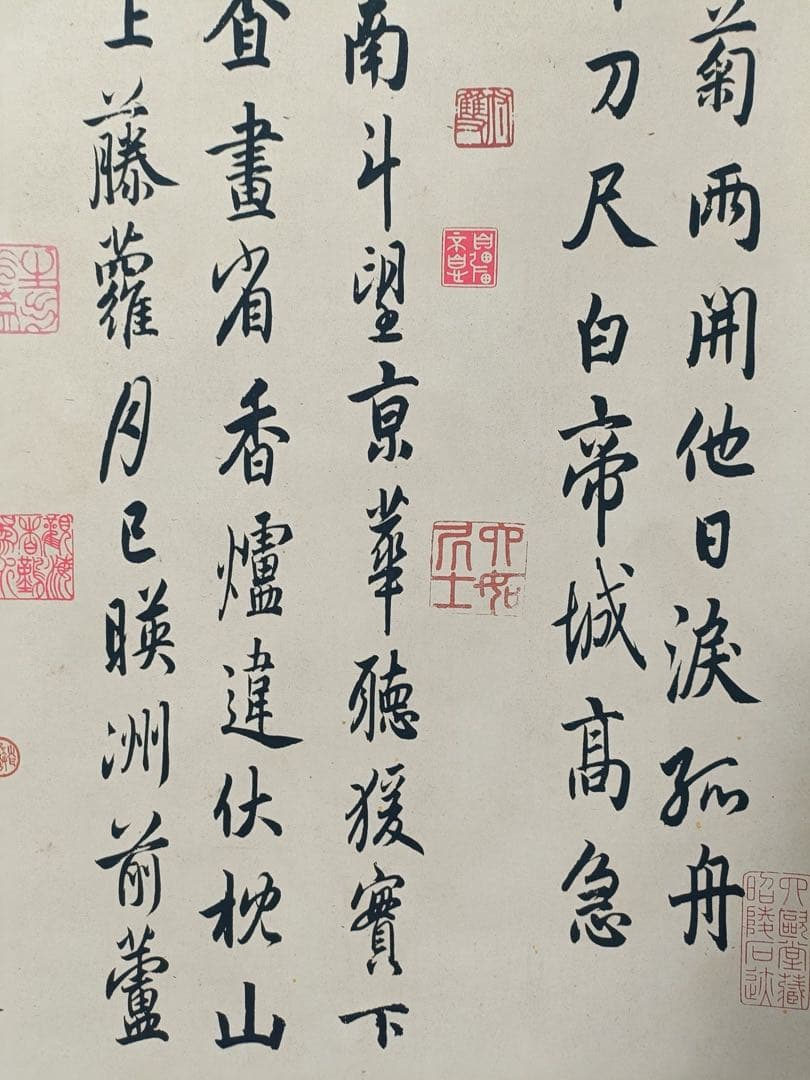 菊兩開他日淚孤舟
刀尺白帝城高急
南斗望京華聽猨實下
查畫省香爐違伏枕山
上藤蘿月已暎洲前蘆
六如居士